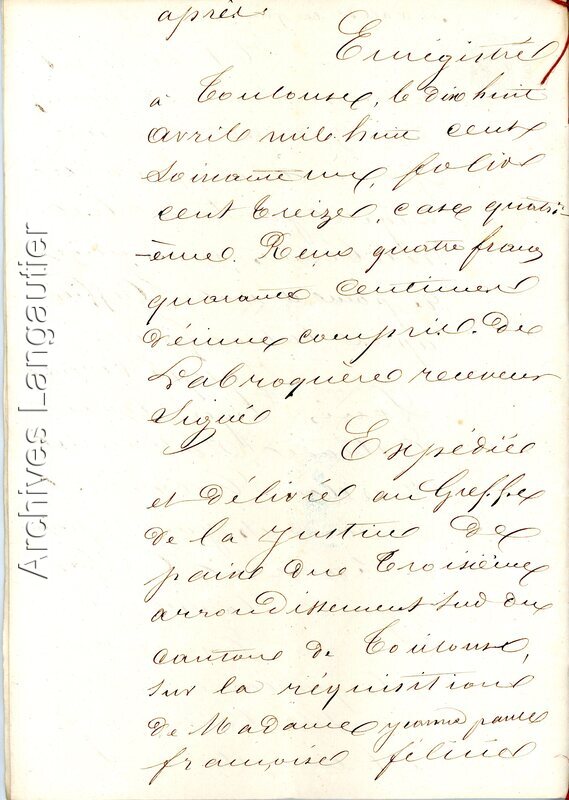 après.
Enregistré
à Toulouse, le dix huit
avril mil huit cent
soixante un, folio
cent treize, case quatri-
-ème. Reçu quatre francs
quarante centimes
décime compris. De
Labroquère receveur
signé
Expédiée
et délivrée au Greffe
de la justice de
paix du troisième
arrondissement sud du
canton de Toulouse,
sur la réquisition
de Madame jeanne
françoise
Archives Langautier